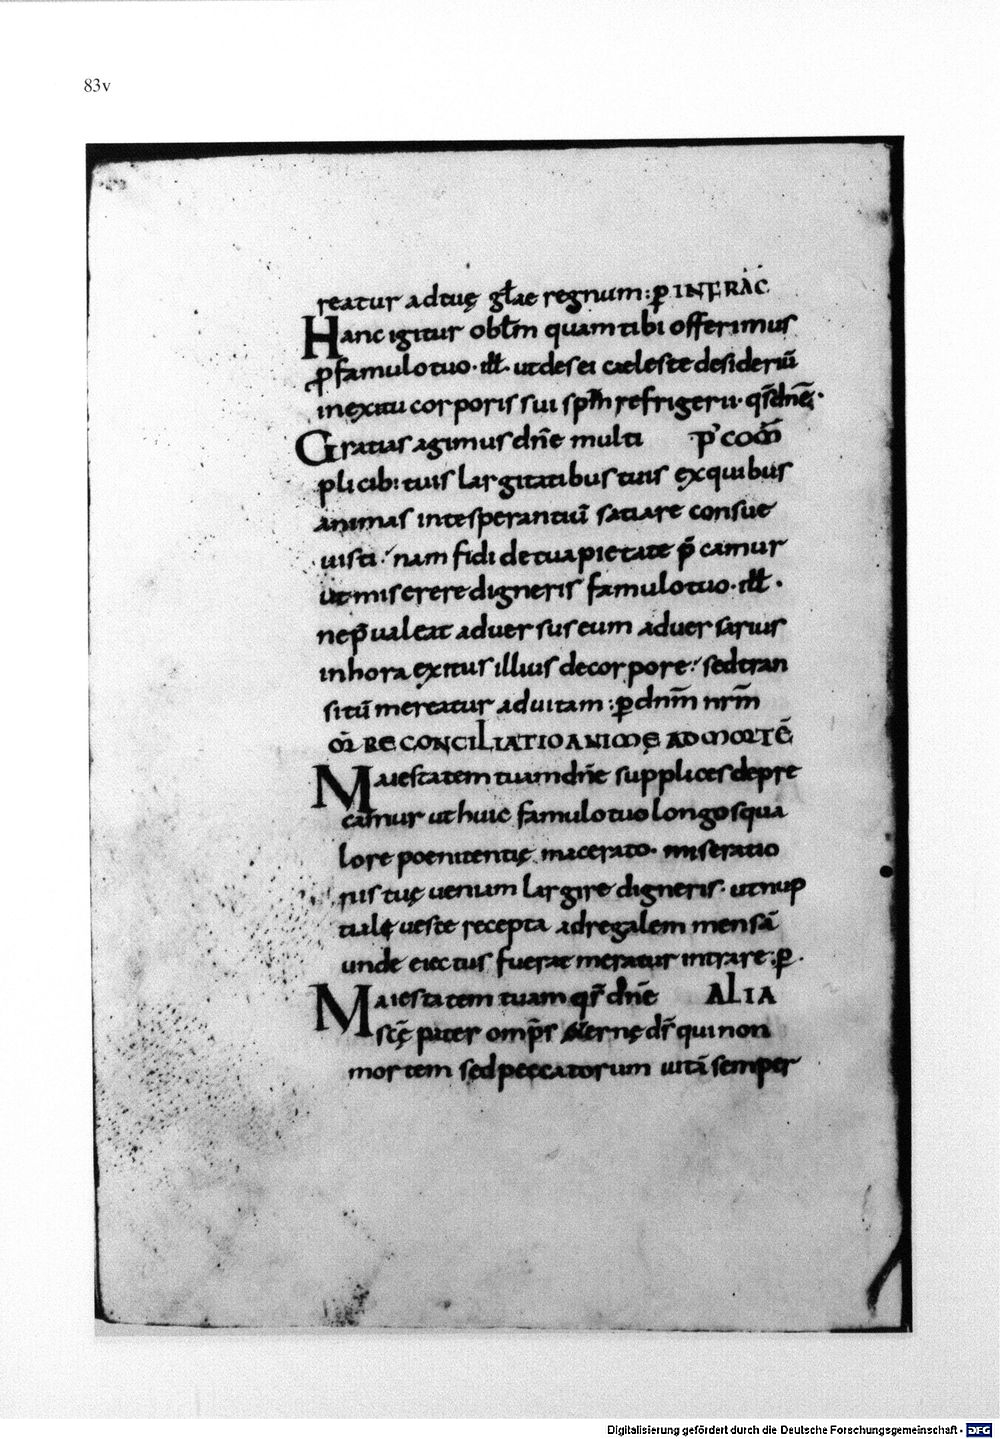 83v
reatur ad tuę gl̄ae regnum: p̱ INFRAC̄
Hanc igitur obl̄m quam tibi offerimus
p̱famulo tuo· ill̄· ut des ei caeleste desideriū
in exitu corporis sui sp̄m refrigerii· qs̄ dn̄e·
Gratias agimus dn̄e multi p' COM̄
plicib: tuis largitatibus tuis ex quibus
animas in te sperantiū satiare consue
uisti nam fidi de tua pietate p̄camur
ut miserere digneris famulo tuo· ill̄·
ne p̄ualeat aduersus eum aduersarius
in hora exitus illius de corpore sed tran
sitū mereatur ad uitam: p̱ dnm̄ nrm̄
OR̄ RECONCILIATIO ANIMĘ AD MORTĒ
Maiestatem tuam dn̄e supplices depre
camur ut huic famulo tuo longo squa
lore poenitentię macerato· miseratio
nis tuę ueniam largire digneris· ut nup
tialę ueste recepta ad regalem mensā
unde eiectus fuerat meratur intrare: p̱·
Maiestatem tuam qs̄ dn̄e ALIA
sc̄ę pater omp̄s aeternę ds̄ qui non
mortem sed peccatorum uitā semper
Digitalisierung gefördert durch die Deutsche Forschungsgemeinschaft - DFG